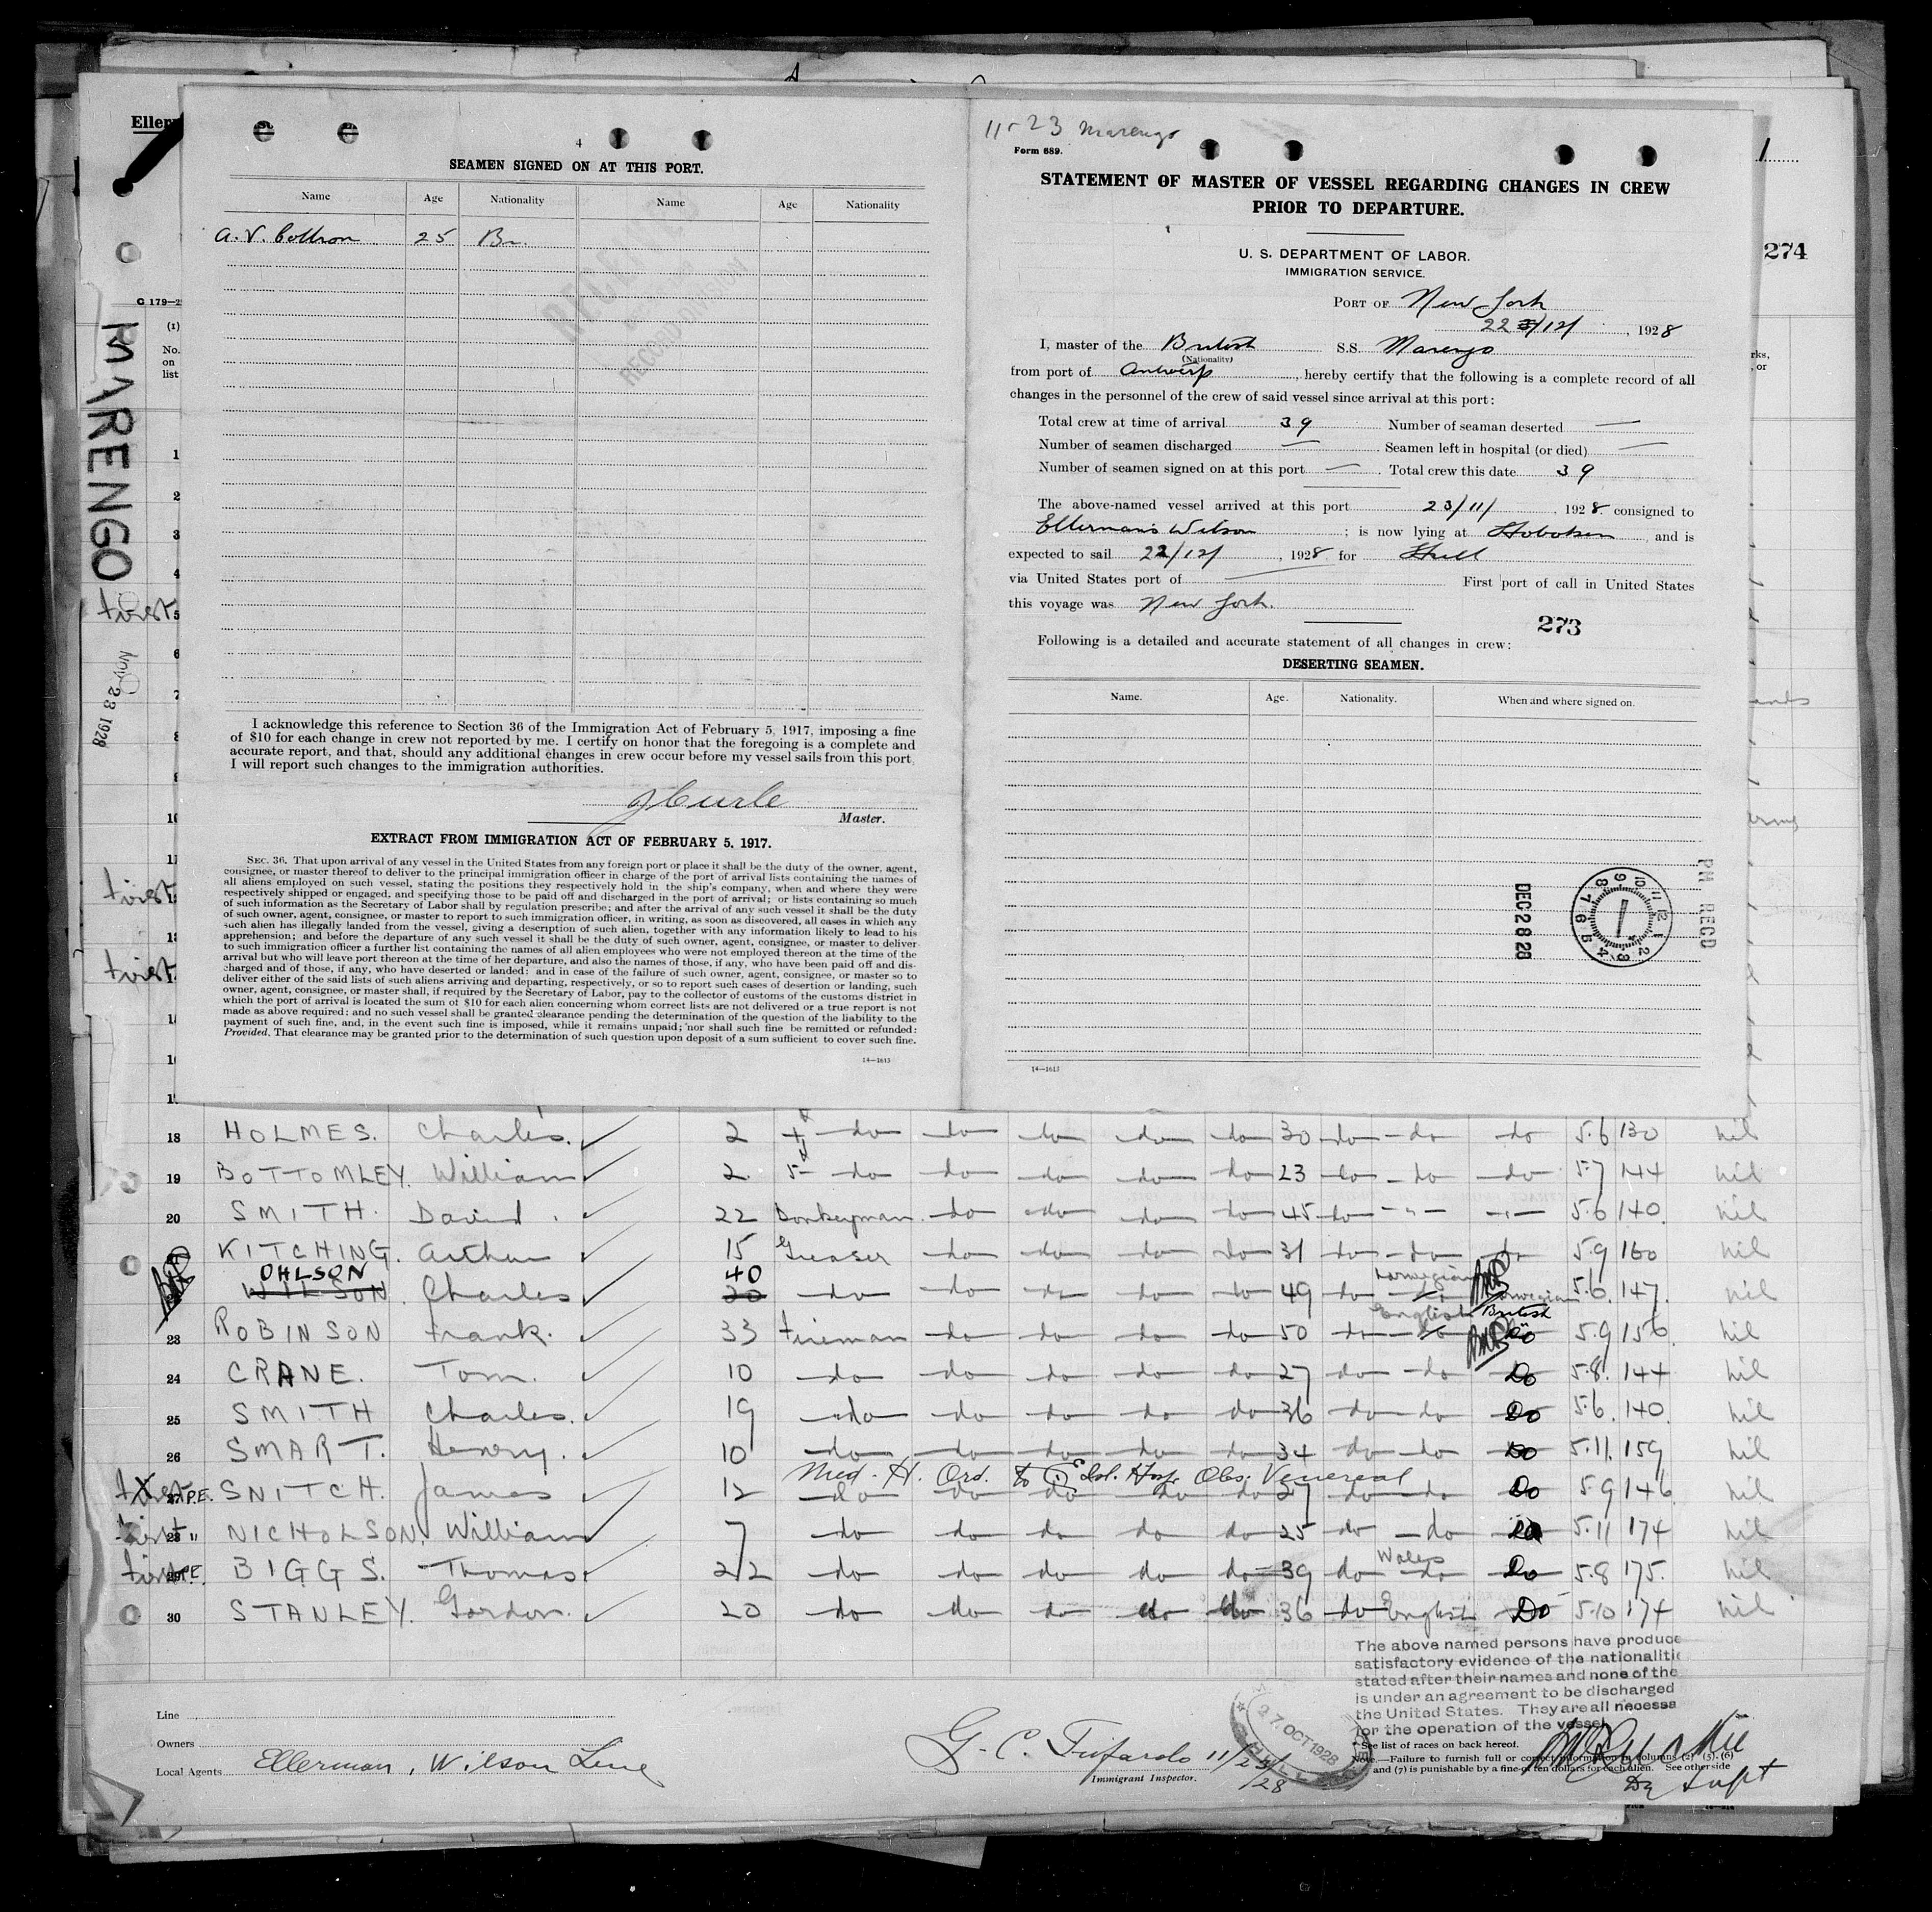 Eller
MARENGO
first
NOV 23 1928
G 179—2
(1)
No.
on
list
1
2
3
4
5
6
7
8
10
11
first
13
first
4
SEAMEN SIGNED ON AT THIS PORT.
Name Age Nationality Name Age Nationality
A. V. 25 Br.
RECEIVED
RECORD DIVISION
I acknowledge this reference to Section 36 of the Immigration Act of February 5, 1917, imposing a fine
of $10 for each change in crew not reported by me. I certify on honor that the foregoing is a complete and
accurate report, and that, should any additional changes in crew occur before my vessel sails from this port
I will report such changes to the immigration authorities.
J Curle
Master.
EXTRACT FROM IMMIGRATION ACT OF FEBRUARY 5, 1917.
SEC. 36. That upon arrival of any vessel in the United States from any foreign port or place it shall be the duty of the owner, agent,
consignee, or master thereof to deliver to the principal immigration officer in charge of the port of arrival lists containing the names of
all aliens employed on such vessel, stating the positions they respectively hold in the ship's company, when and where they were
respectively shipped or engaged, and specifying those to be paid off and discharged in the port of arrival; or lists containing so much
of such information as the Secretary of Labor shall by regulation prescribe; and after the arrival of any such vessel it shall be the duty
of such owner, agent, consignee, or master to report to such immigration officer, in writing, as soon as discovered, all cases in which any
such alien has illegally landed from the vessel, giving a description of such alien, together with any information likely to lead to his
apprehension; and before the departure of any such vessel it shall be the duty of such owner, agent, consignee, or master to deliver
to such immigration officer a further list containing the names of all alien employees who were not employed thereon at the time of the
arrival but who will leave port thereon at the time of her departure, and also the names of those, if any, who have been paid off and dis-
charged and of those, if any, who have deserted or landed; and in case of the failure of such owner, agent, consignee, or master so to
deliver either of the said lists of such aliens arriving and departing, respectively, or so to report such cases of desertion or landing, such
owner, agent, consignee, or master shall, if required by the Secretary of Labor, pay to the collector of customs of the customs district in
which the port of arrival is located the sum of $10 for each alien concerning whom correct lists are not delivered or a true report is not
made as above required; and no such vessel shall be granted clearance pending the determination of the question of the liability to the
payment of such fine, and, in the event such fine is imposed, while it remains unpaid; nor shall such fine be remitted or refunded:
Provided, That clearance may be granted prior to the determination of such question upon deposit of a sum sufficient to cover such fine.
14—1613
11-23 Marengo
Form 689.
STATEMENT OF MASTER OF VESSEL REGARDING CHANGES IN CREW
PRIOR TO DEPARTURE.
U. S. DEPARTMENT OF LABOR.
IMMIGRATION SERVICE.
PORT OF New York
22/12/, 1928
I, master of the British S.S. Marengo
(Nationality)
from port of Antwerp, hereby certify that the following is a complete record of all
changes in the personnel of the crew of said vessel since arrival at this port:
Total crew at time of arrival 39 Number of seaman deserted —
Number of seamen discharged — Seamen left in hospital (or died) —
Number of seamen signed on at this port — . Total crew this date 39
The above-named vessel arrived at this port 23/11/, 1928. consigned to
Ellerman's Wilson; is now lying at Hoboken, and is
expected to sail 22/12/, 1928 for Hull
via United States port of — First port of call in United States
this voyage was New York.
273
Following is a detailed and accurate statement of all changes in crew:
DESERTING SEAMEN.
Name. Age. Nationality. When and where signed on.
DEC 28 28
PM RECD
14—1613
1
274
rks,
, or
18 HOLMES. Charles. 2 do do do do do 30 do do do 5.6 130 nil
19 BOTTOMLEY. William 2 5 do do do do do 23 do do do 5.7 144 nil
20 SMITH. David. 22 Donkeyman do do do do 45 do " " 5.6 140 nil
KITCHING. Arthur 15 Greaser do do do do 31 do do do 5.9 160 nil
OHLSON 40 Norwegian
WILSON. Charles 20 do do do do do 49 do Norwegian 5.6. 147. nil
English British
23 ROBINSON Frank. 33 Fireman do do do do 50 do do do 5.9 156 nil
24 CRANE. Tom. 10 do do do do do 27 do do Do 5.8. 144 nil
25 SMITH Charles. 19 do do do do do 36 do do Do 5.6. 140. nil
26 SMART. Henry. 10 do do do do do 34 do do Do 5.11. 159 nil
Med. H. Ord. to Isl. Hosp. Obs. Venereal
first 27 P.E. SNITCH. James 12 do do do do do 27 do do Do 5.9 146 nil
first 28 " NICHOLSON. William 7 do do do do do 25 do do Do 5.11 174 nil
Wales
first 29 P.E. BIGGS. Thomas 22 do do do do do 39 do do Do 5.8 175. nil
30 STANLEY. Gordon. 20 do do do do do 36 do English Do 5.10 174 nil
The above named persons have produce
satisfactory evidence of the nationaliti
stated after their names and none of the
is under an agreement to be discharged
the United States. They are all necessa
for the operation of the vessel
Line
Owners
Local Agents Ellerman, Wilson Line
G. C. Tufarolo 11/23/28
Immigrant Inspector.
27 OCT 1928
See list of races on back hereof.
Note.—Failure to furnish full or correct information in columns (2) (5) (6)
and (7) is punishable by a fine of ten dollars for each alien. See other side
Dy Supt